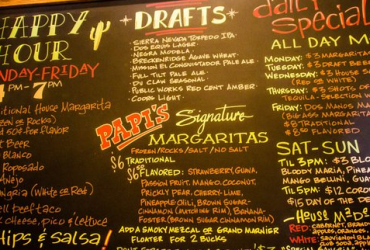 HAPPY
HOUR
NDAY-FRIDAY
PM - 7PM
ditional House Margarita
for Flavor
Beer
Blanco
Reposado
(White or Red)
Beef taco
cheese, pico & lettuce
hips & Salsa!
- DRAFTS -
- Sierra Nevada Torpedo IPA
- Dos Equis Lager
- Negra Modelo
- Breckenridge Agave Wheat
- Mission El Conquistador Pale Ale
- Full Tilt Pale Ale
- DJ Clay Seasonal
- Public Works Red Cent Amber
- Coors Light
PAPI'S Signature
MARGARITAS
Frozen/Rocks/Salt/No Salt
$6 Traditional
$6 Flavored: Strawberry, Guava,
Passion Fruit, Mango, Coconut,
Prickly Pear, Cherry Lime,
Pineapple Chili, Brown Sugar-
Cinnamon (Autumn Rim), Banana-
Foster (Brown Sugar Cinnamon Rim)
Add a Smoky Mezcal or Grand Marnier
Floater for 2 Bucks
Daily
Special
ALL DAY M
Monday: $3 Margaritas
Tuesday: $3 Dra
Wednesday: $3 House S
(Red or White)
Thursday: $3 Shots of
Tequila
Friday: Dos Manos Ma
(Big Ass Margarita
$7 Traditional
$8.50 Flavored
SAT-SUN
Til 3pm: $3 Bloo
Bloody Maria, Pineap
Mango Bellini, Gua
Til 5pm: $12 Coro
$15 Day of the De
- House Made
Red:
White: